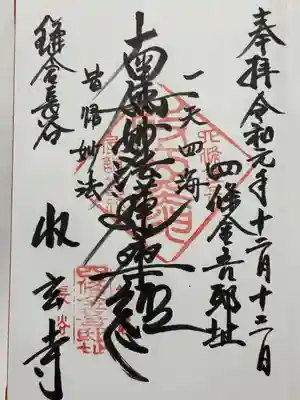 奉拝 令和元年十二月十二日
四條金吾邸址
一天四海
南無妙法蓮華経
皆帰妙法
鎌倉長谷
收玄寺